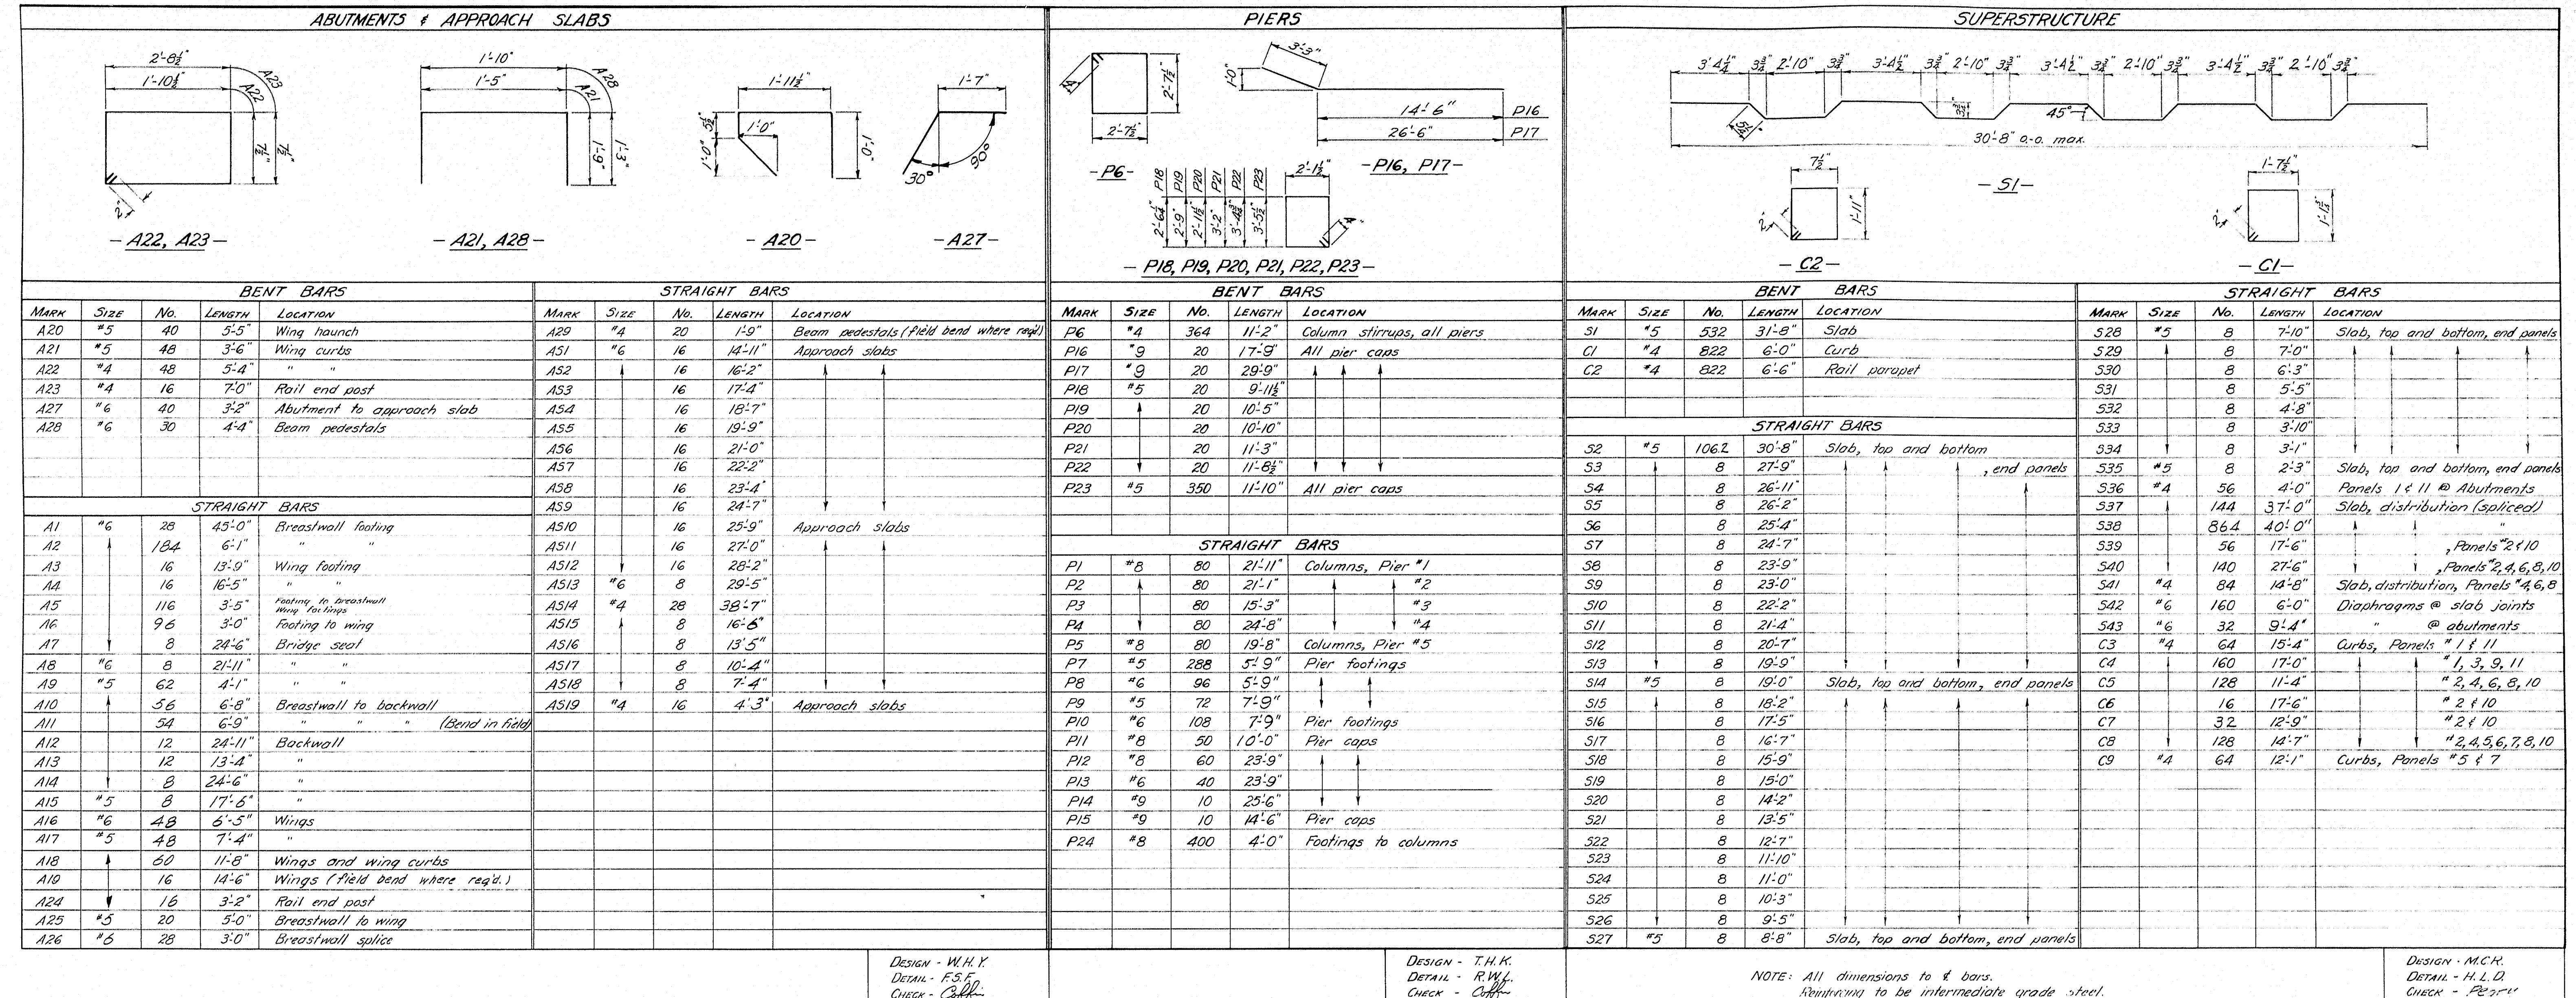 ABUTMENTS & APPROACH SLABS
2'-8½"
1'-10½"
A23
A22
7½"
7½"
2"
- A22, A23 -
1'-10"
1'-5"
A28
A21
1'-9"
1'-3"
- A21, A28 -
1'-11½"
5½"
1'-0"
1'-0"
1'-0"
- A20 -
1'-7"
30°
90°
- A27 -
BENT BARS
MARK SIZE No. LENGTH LOCATION
A20 #5 40 5'-5" Wing haunch
A21 #5 48 3'-6" Wing curbs
A22 #4 48 5'-4" " "
A23 #4 16 7'-0" Rail end post
A27 #6 40 3'-2" Abutment to approach slab
A28 #6 30 4'-4" Beam pedestals
STRAIGHT BARS
A1 #6 28 45'-0" Breastwall footing
A2 184 6'-1" " "
A3 16 13'-9" Wing footing
A4 16 16'-5" " "
A5 116 3'-5" Footing to breastwall
Wing footings
A6 96 3'-0" Footing to wing
A7 8 24'-6" Bridge seat
A8 #6 8 21'-11" " "
A9 #5 62 4'-1" " "
A10 56 6'-8" Breastwall to backwall
A11 54 6'-9" " " " (Bend in field)
A12 12 24'-11" Backwall
A13 12 13'-4" "
A14 8 24'-6" "
A15 #5 8 17'-6" "
A16 #6 48 6'-5" Wings
A17 #5 48 7'-4" "
A18 60 11'-8" Wings and wing curbs
A19 16 14'-6" Wings (field bend where req'd.)
A24 16 3'-2" Rail end post
A25 #5 20 5'-0" Breastwall to wing
A26 #6 28 3'-0" Breastwall splice
STRAIGHT BARS
MARK SIZE No. LENGTH LOCATION
A29 #4 20 1'-9" Beam pedestals (field bend where req'd)
AS1 #6 16 14'-11" Approach slabs
AS2 16 16'-2"
AS3 16 17'-4"
AS4 16 18'-7"
AS5 16 19'-9"
AS6 16 21'-0"
AS7 16 22'-2"
AS8 16 23'-4"
AS9 16 24'-7"
AS10 16 25'-9" Approach slabs
AS11 16 27'-0"
AS12 16 28'-2"
AS13 #6 8 29'-5"
AS14 #4 28 38'-7"
AS15 8 16'-6"
AS16 8 13'5"
AS17 8 10'-4"
AS18 8 7'-4"
AS19 #4 16 4'3" Approach slabs
DESIGN - W.H.Y.
DETAIL - F.S.F.
CHECK - Coffin
PIERS
4"
2'-7½"
2'-7½"
- P6 -
3'-3"
1'-0"
14'-6" P16
26'-6" P17
- P16, P17 -
P18 P19 P20 P21 P22 P23
2'-6¼" 2'-9" 2'-11½" 3'-2" 3'-4¾" 3'-5½"
2'-1½"
4"
- P18, P19, P20, P21, P22, P23 -
BENT BARS
MARK SIZE No. LENGTH LOCATION
P6 #4 364 11'-2" Column stirrups, all piers
P16 #9 20 17'-9" All pier caps
P17 #9 20 29'-9"
P18 #5 20 9'-11½"
P19 20 10'-5"
P20 20 10'-10"
P21 20 11'-3"
P22 20 11'-8½"
P23 #5 350 11'-10" All pier caps
STRAIGHT BARS
P1 #8 80 21'-11" Columns, Pier #1
P2 80 21'-1" #2
P3 80 15'-3" #3
P4 80 24'-8" #4
P5 #8 80 19'-8" Columns, Pier #5
P7 #5 288 5'-9" Pier footings
P8 #6 96 5'-9"
P9 #5 72 7'-9"
P10 #6 108 7'-9" Pier footings
P11 #8 50 10'-0" Pier caps
P12 #8 60 23'-9"
P13 #6 40 23'-9"
P14 #9 10 25'-6"
P15 #9 10 14'-6" Pier caps
P24 #8 400 4'-0" Footings to columns
DESIGN - T.H.K.
DETAIL - R.W.L.
CHECK - Coffin
SUPERSTRUCTURE
3'4½" 3¾" 2'-10" 3¾" 3'-4½" 3¾" 2'-10" 3¾" 3'-4½" 3¾" 2'-10" 3¾" 3'-4½" 3¾" 2'-10" 3¾"
45°
30'-8" o.-o. max.
- S1 -
7½"
1'-11"
2"
- C2 -
1'-7½"
2"
- C1 -
BENT BARS
MARK SIZE No. LENGTH LOCATION
S1 #5 532 31'-8" Slab
C1 #4 822 6'-0" Curb
C2 #4 822 6'-6" Rail parapet
STRAIGHT BARS
S2 #5 1062 30'-8" Slab, top and bottom
S3 8 27'-9" , end panels
S4 8 26'-11"
S5 8 26'-2"
S6 8 25'-4"
S7 8 24'-7"
S8 8 23'-9"
S9 8 23'-0"
S10 8 22'-2"
S11 8 21'-4"
S12 8 20'-7"
S13 8 19'-9"
S14 #5 8 19'-0" Slab, top and bottom, end panels
S15 8 18'-2"
S16 8 17'-5"
S17 8 16'-7"
S18 8 15'-9"
S19 8 15'-0"
S20 8 14'-2"
S21 8 13'-5"
S22 8 12'-7"
S23 8 11'-10"
S24 8 11'-0"
S25 8 10'-3"
S26 8 9'-5"
S27 #5 8 8'-8" Slab, top and bottom, end panels
STRAIGHT BARS
MARK SIZE No. LENGTH LOCATION
S28 #5 8 7'-10" Slab, top and bottom, end panels
S29 8 7'-0"
S30 8 6'-3"
S31 8 5'-5"
S32 8 4'-8"
S33 8 3'-10"
S34 8 3'-1"
S35 #5 8 2'-3" Slab, top and bottom, end panels
S36 #4 56 4'-0" Panels 1 & 11 @ Abutments
S37 144 37'-0" Slab, distribution (spliced)
S38 864 40'-0" "
S39 56 17'-6" , Panels #2 & 10
S40 140 27'-6" , Panels #2,4,6,8,10
S41 #4 84 14'-8" Slab, distribution, Panels #4,6,8
S42 #6 160 6'-0" Diaphragms @ slab joints
S43 #6 32 9'-4" " @ abutments
C3 #4 64 15'-4" Curbs, Panels #1 & 11
C4 160 17'-0" #1, 3, 9, 11
C5 128 11'-4" #2, 4, 6, 8, 10
C6 16 17'-6" #2 & 10
C7 32 12'-9" #2 & 10
C8 128 14'-7" #2,4,5,6,7,8,10
C9 #4 64 12'-1" Curbs, Panels #5 & 7
NOTE: All dimensions to ℄ bars.
Reinforcing to be intermediate grade steel.
DESIGN - M.C.K.
DETAIL - H.L.D.
CHECK -